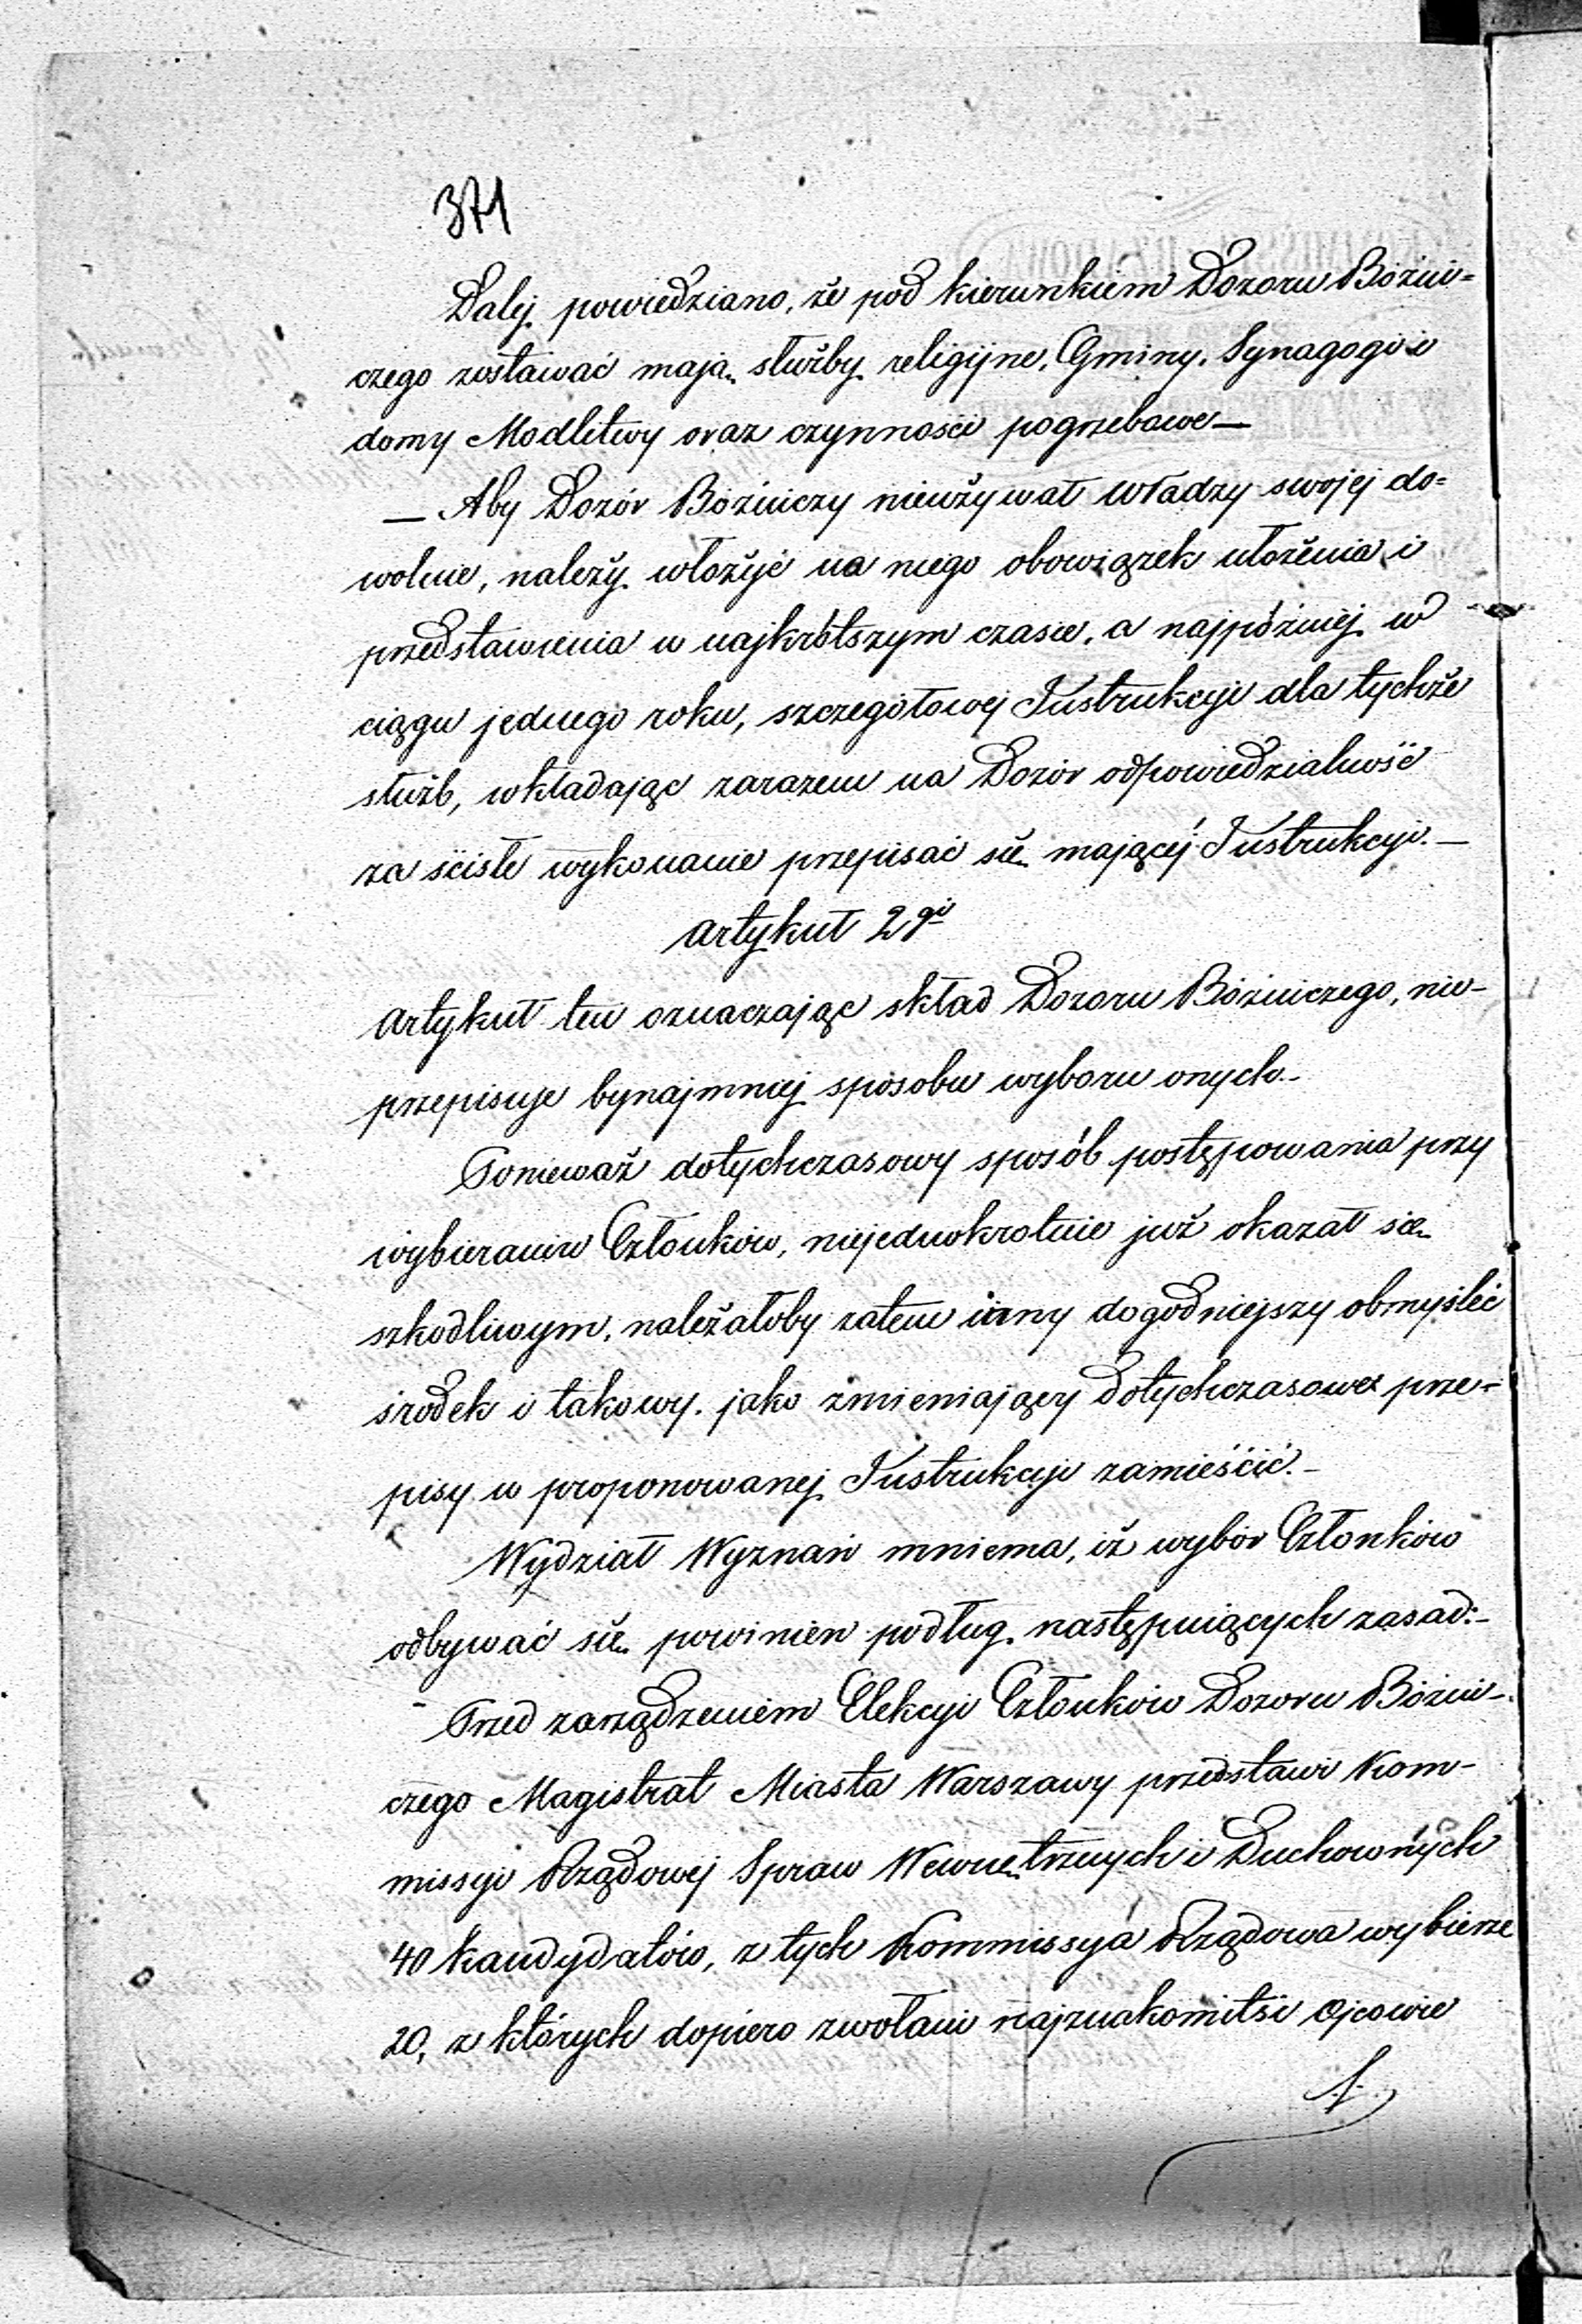 371
Dalej powiedziano, że pod kierunkiem Dozoru Bóżni=
czego zostawać mają służby religijne, Gminy, Synagogi i
domy Modlitwy oraz czynności pogrzebowe —
— Aby Dozór Bóźniczy nieużywał władzy swojej do=
wolnie, należy włożyć na niego obowiązek ułożenia i
przedstawienia w najkrótszym czasie, a najpóźniej w
ciągu jednego roku, szczegółowej Instrukcyi dla tychże
służb, wkładając zarazem na Dozór odpowiedzialność
za ściste wykonanie przepisać się mającej Instrukcyi. —
Artykuł 2gi
Artykuł ten oznaczając skład Dozoru Bóźniczego, nie-
przepisuje bynajmniej sposobu wyboru onych. -
Ponieważ dotychczasowy sposób postępowania przy
wybieraniu Członków, niejednokrotnie już okazał się
szkodliwym, należałoby zatem inny dogodniejszy obmyśleć
środek i takowy, jako zmieniający dotychczasowe prze-
pisy w proponowanej Instrukcyi zamieścić. -
Wydział Wyznań mniema, iż wybór Członków
odbywać się powinien podług następuiących zasad: -
- Przed zarządzeniem Elekcyi Członków Dozoru Bóźni-
czego Magistrat Miasta Warszawy przedstawi Kom-
missyi Rządowej Spraw Wewnętrznych i Duchownych
40 Kandydatów, z tych Kommissya Rządowa wybierze
20, z których dopiero zwołani najznakomitsi Ojcowie